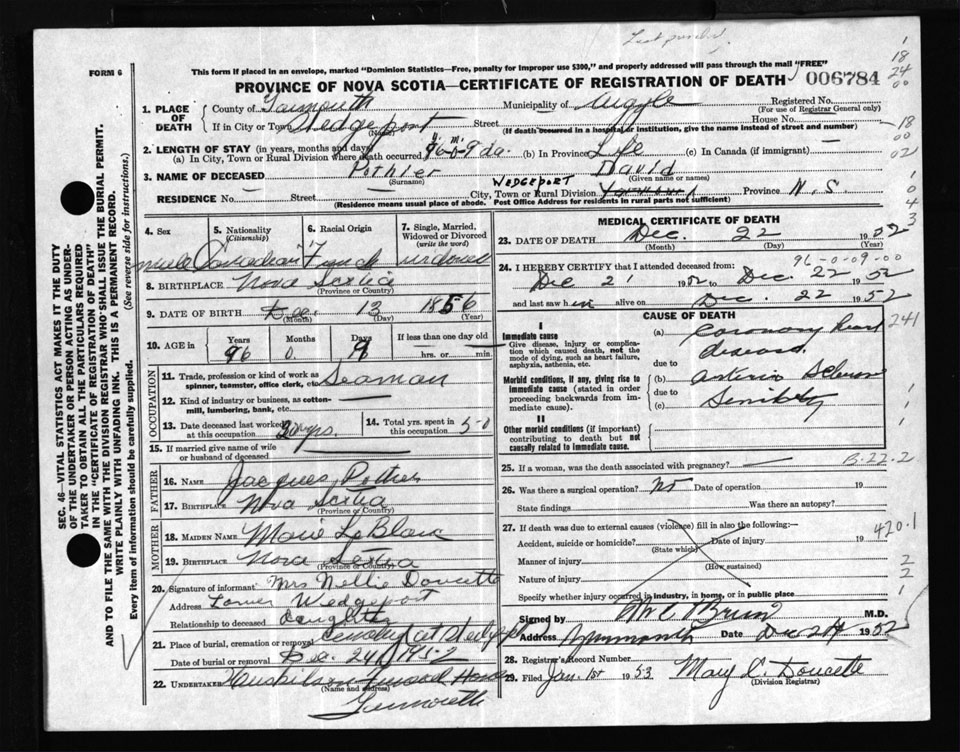 Last purchd.
FORM 6
This form if placed in an envelope, marked "Dominion Statistics—Free, penalty for improper use $300," and properly addressed will pass through the mail "FREE"
PROVINCE OF NOVA SCOTIA—CERTIFICATE OF REGISTRATION OF DEATH 006784
1. PLACE OF DEATH
County of Yarmouth Municipality of Argyle Registered No.
(For use of Registrar General only)
If in City or Town Wedgeport (Name) Street House No.
(If death occurred in a hospital or institution, give the name instead of street and number)
2. LENGTH OF STAY (in years, months and days)
(a) In City, Town or Rural Division where death occurred 96-0-9 da. (b) In Province Life (c) In Canada (if immigrant) —
3. NAME OF DECEASED Pothier David
(Surname) (Given name or names)
RESIDENCE No. — Street — City, Town or Rural Division WEDGEPORT Yarmouth Province N.S.
(Residence means usual place of abode. Post Office Address for residents in rural parts not sufficient)
4. Sex
male
5. Nationality
(Citizenship)
Canadian
6. Racial Origin
French
7. Single, Married, Widowed or Divorced
(write the word)
widowed
8. BIRTHPLACE Nova Scotia
(Province or Country)
9. DATE OF BIRTH Dec. 13 1856
(Month) (Day) (Year)
10. AGE in Years Months Days If less than one day old
96 0 9 hrs. or min.
OCCUPATION
11. Trade, profession or kind of work as spinner, teamster, office clerk, etc. Seaman
12. Kind of industry or business, as cotton-mill, lumbering, bank, etc. —
13. Date deceased last worked at this occupation 30 yrs.
14. Total yrs. spent in this occupation 50
15. If married give name of wife or husband of deceased —
FATHER
16. NAME Jacques Pothier
17. BIRTHPLACE Nova Scotia
(Province or Country)
MOTHER
18. MAIDEN NAME Marie LeBlanc
19. BIRTHPLACE Nova Scotia
(Province or Country)
20. Signature of informant Mrs Nellie Doucette
Address Lower Wedgeport
Relationship to deceased daughter
21. Place of burial, cremation or removal Cemetery at Wedgeport
Date of burial or removal Dec. 24 1952
22. UNDERTAKER Funeral Home
(Name and address)
Yarmouth
MEDICAL CERTIFICATE OF DEATH
23. DATE OF DEATH Dec. 22 1952
(Month) (Day) (Year)
96-0-09-00
24. I HEREBY CERTIFY that I attended deceased from:
Dec 21 1952 to Dec. 22 52
and last saw him alive on Dec. 22 1952
CAUSE OF DEATH
I
Immediate cause
Give disease, injury or complication which caused death, not the mode of dying, such as heart failure, asphyxia, asthenia, etc.
(a) Coronary heart disease.
due to
Morbid conditions, if any, giving rise to immediate cause (stated in order proceeding backwards from immediate cause).
(b) Arterio Sclerosis
due to
(c) Senility
II
Other morbid conditions (if important) contributing to death but not causally related to immediate cause.
25. If a woman, was the death associated with pregnancy? —
B-22-2
26. Was there a surgical operation? No Date of operation 19
State findings Was there an autopsy?
27. If death was due to external causes (violence) fill in also the following:—
Accident, suicide or homicide? Date of injury 19
(State which)
420.1
Manner of injury
(How sustained)
Nature of injury
Specify whether injury occurred in industry, in home, or in public place
Signed by M.D.
Address Yarmouth Date Dec 24 1952
28. Registrar's Record Number
29. Filed Jan. 1st 1953 Mary E. Doucette
(Division Registrar)
SEC. 46—VITAL STATISTICS ACT MAKES IT THE DUTY OF THE UNDERTAKER OR PERSON ACTING AS UNDERTAKER TO OBTAIN ALL THE PARTICULARS REQUIRED IN THE "CERTIFICATE OF REGISTRATION OF DEATH" AND TO FILE THE SAME WITH THE DIVISION REGISTRAR WHO SHALL ISSUE THE BURIAL PERMIT.
WRITE PLAINLY WITH UNFADING INK. THIS IS A PERMANENT RECORD.
Every item of information should be carefully supplied. (See reverse side for instructions.)
1
18
24
00
18
00
02
1
0
4
3
241
1
1
1
2
2
1